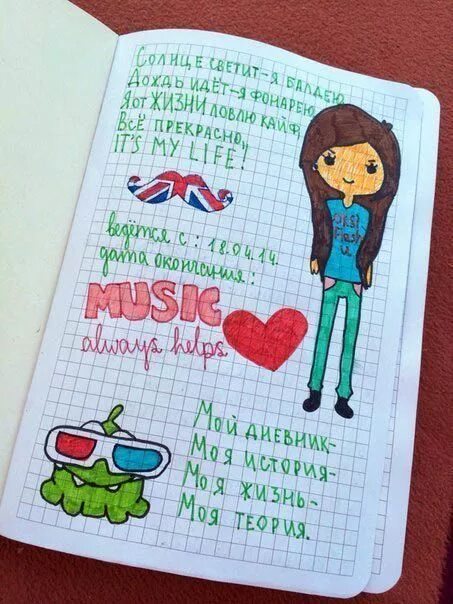 Солнце светит-я балдею
Дождь идёт-я фонарею
Я от ЖИЗНИ ловлю кайф,
Всё прекрасно,
IT'S MY LIFE!
ведётся с: 18.04.14.
дата окончания:
MUSIC
always helps
Мой дневник-
Моя история-
Моя жизнь-
Моя теория.